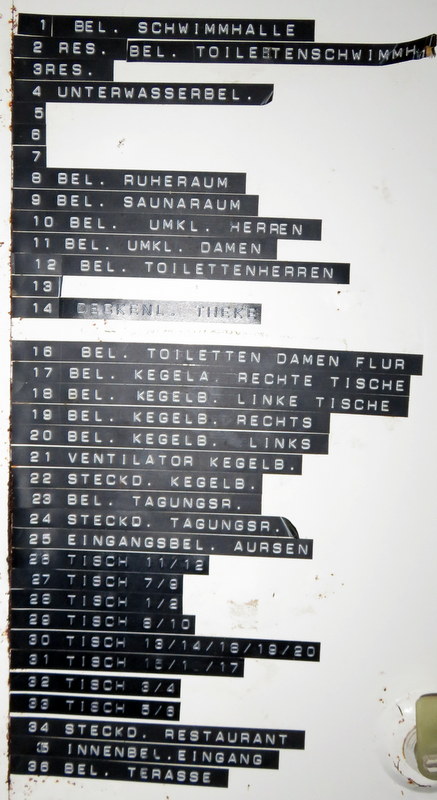 1 BEL. SCHWIMMHALLE
2 RES. BEL. TOILETTENSCHWIMMH
3RES.
4 UNTERWASSERBEL.
5
6
7
8 BEL. RUHERAUM
9 BEL. SAUNARAUM
10 BEL. UMKL. HERREN
11 BEL. UMKL. DAMEN
12 BEL. TOILETTENHERREN
13
14 DECKENL. THEKE
16 BEL. TOILETTEN DAMEN FLUR
17 BEL. KEGELA. RECHTE TISCHE
18 BEL. KEGELB. LINKE TISCHE
19 BEL. KEGELB. RECHTS
20 BEL. KEGELB. LINKS
21 VENTILATOR KEGELB.
22 STECKD. KEGELB.
23 BEL. TAGUNGSR.
24 STECKD. TAGUNGSR.
25 EINGANGSBEL. AURSEN
26 TISCH 11/12
27 TISCH 7/9
28 TISCH 1/2
29 TISCH 8/10
30 TISCH 13/14/18/19/20
31 TISCH
32 TISCH 3/4
33 TISCH 5/6
34 STECKD. RESTAURANT
35 INNENBEL.EINGANG
36 BEL. TERASSE